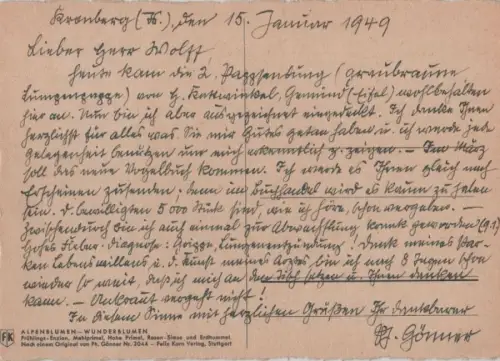 Kronberg (Ts.), den 15. Januar 1949
Lieber Herr Wolff,
heute kam die 2. Pappsendung (graubraune
Lumpenpappe) von H. Katwinkel, Gemünd (Eifel) wohlbehalten
hier an. Nun bin ich aber ausgezeichnet eingedeckt. Ich danke Ihnen
herzlichst für alles was Sie mir Gutes getan haben u. ich werde jede
Gelegenheit benützen um mich erkenntlich z. zeigen. – Im März
soll das neue Vogelbuch kommen. Ich werde es Ihnen gleich nach
Erscheinen zusenden; denn im Buchhandel wird es kaum zu haben
sein. D. bewilligten 5000 Stück sind, wie ich höre, schon vergeben. –
Zwischendurch bin ich auch einmal zur Abwechslung krank geworden
hohes Fieber. Diagnose: Grippe, Lungenentzündung! Dank meines star-
ken Lebenswillens u. d. Kunst meines Arztes bin ich nach 8 Tagen schon
wieder so weit, daß ich mich an den Tisch setzen u. Ihnen danken
kann. – Unkraut vergeht nicht!
In diesem Sinne mit herzlichen Grüßen Ihr dankbarer
Ph. Gönner
FK
ALPENBLUMEN – WUNDERBLUMEN
Frühlings-Enzian, Mehlprimel, Hohe Primel, Rosen-Siese und Erdhummel
Nach einem Original von Ph. Gönner Nr. 2044 – Felix Korn Verlag, Stuttgart